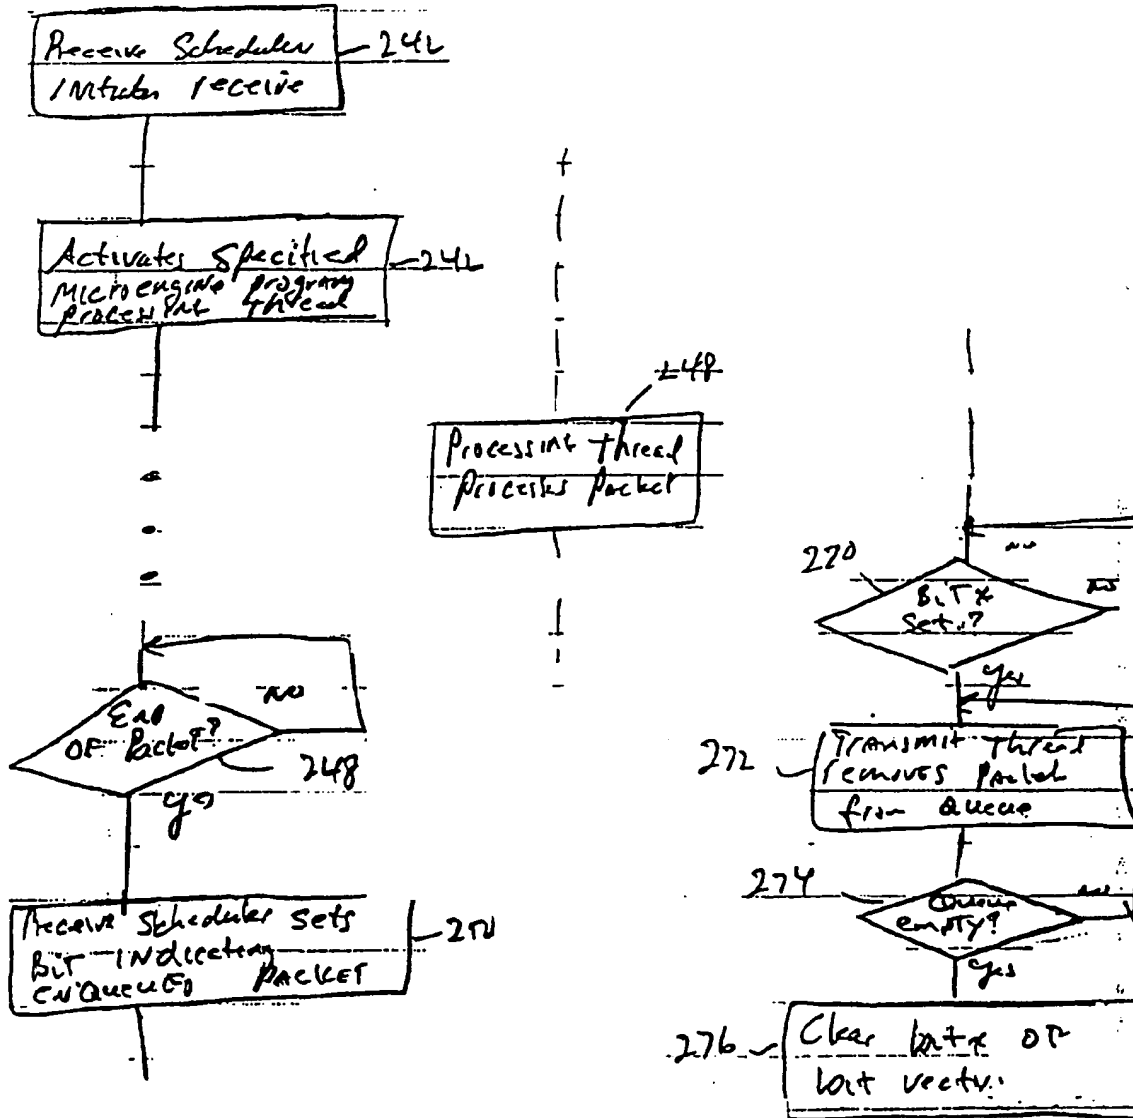 Receive Scheduler
Initiates receive
242
Activates Specified
Microengine program
processing thread
242
248
Processing thread
processes packet
End
OF Packet?
NO
248
yes
Receive Scheduler sets
BIT INDICATING
ENQUEUED PACKET
250
270
BIT x
Set?
NO
NO
yes
272
Transmit thread
removes packet
from Queue
274
Queue
empty?
NO
yes
276
Clear bit x of
bit vector